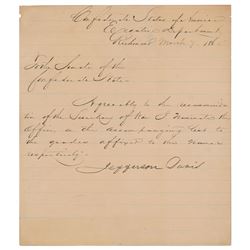 Confederate States of America
Executive Department
Richmond March 7, 186
To the Senate of the
Confederate States
Agreeably to the recommenda-
tion of the Secretary of War I nominate the
Officers on the accompanying list to
the grades affixed to their names
respectively.
Jefferson Davis